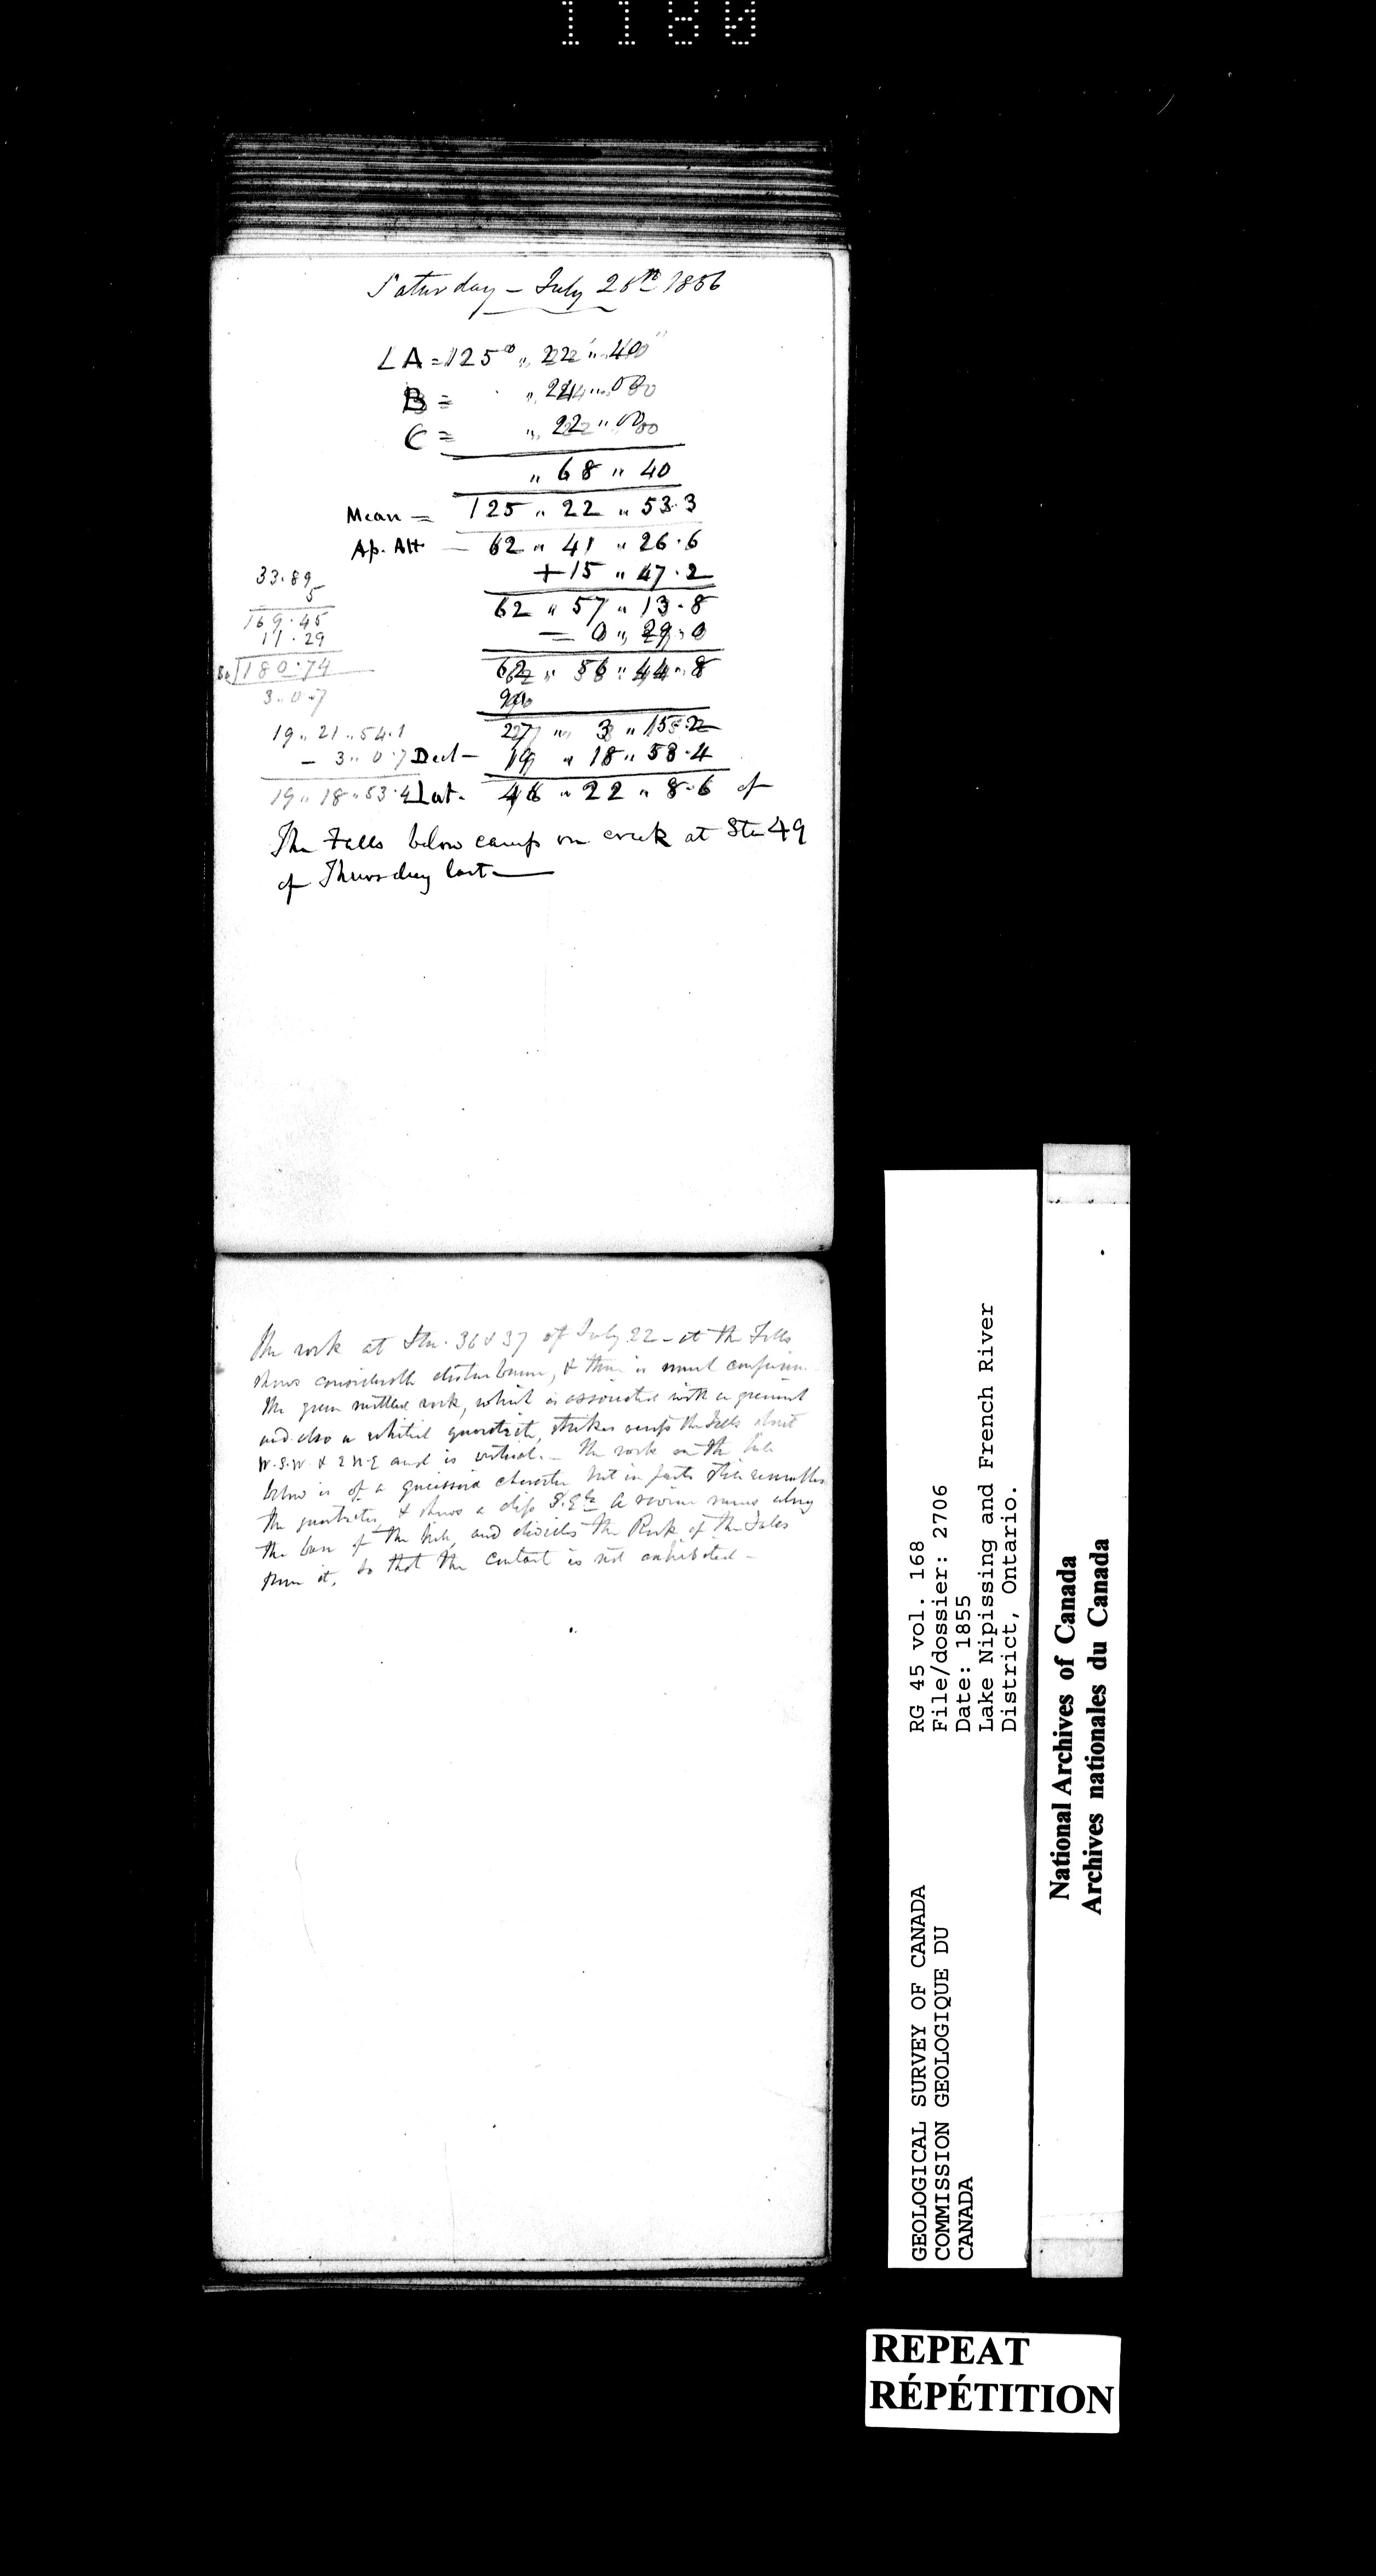 1180
Saturday - July 26th 1856
∠A = 125° " 22' " 40"
B = " 24 " 00
C = " 22 " 00
" 68 " 40
Mean = 125 " 22 " 53.3
Ap. Alt — 62 " 41 " 26.6
+ 15 " 47.2
62 " 57 " 13.8
— 0 " 29.0
62 " 56 " 44.8
90
27 " 3 " 15.2
Decl - 19 " 18 " 53.4
Lat. 46 " 22 " 8.6 of
The Falls below camp on creek at Stn 49
of Thursday last —
33.89
5
169.45
11.29
60 180.74
3.0.7
19 " 21 " 54.1
— 3 " 0.7
19 " 18 " 53.4
The rock at Stn. 36 & 37 of July 22 - at the Falls
shows considerable disturbance, & there is much confusion.
The green rock, which is associated with a greenish
and also a whitish quartzite, strikes across the Falls about
W.S.W. & E N.E and is vertical. - The rock on the hill
below is of a gneissoid character but in parts still resembles
the quartzites, & shows a dip S.Ely A ravine runs along
the base of the hill, and divides the Rock of the Falls
from it, so that the contact is not exhibited -
GEOLOGICAL SURVEY OF CANADA
COMMISSION GEOLOGIQUE DU
CANADA
RG 45 vol. 168
File/dossier: 2706
Date: 1855
Lake Nipissing and French River
District, Ontario.
National Archives of Canada
Archives nationales du Canada
REPEAT
RÉPÉTITION